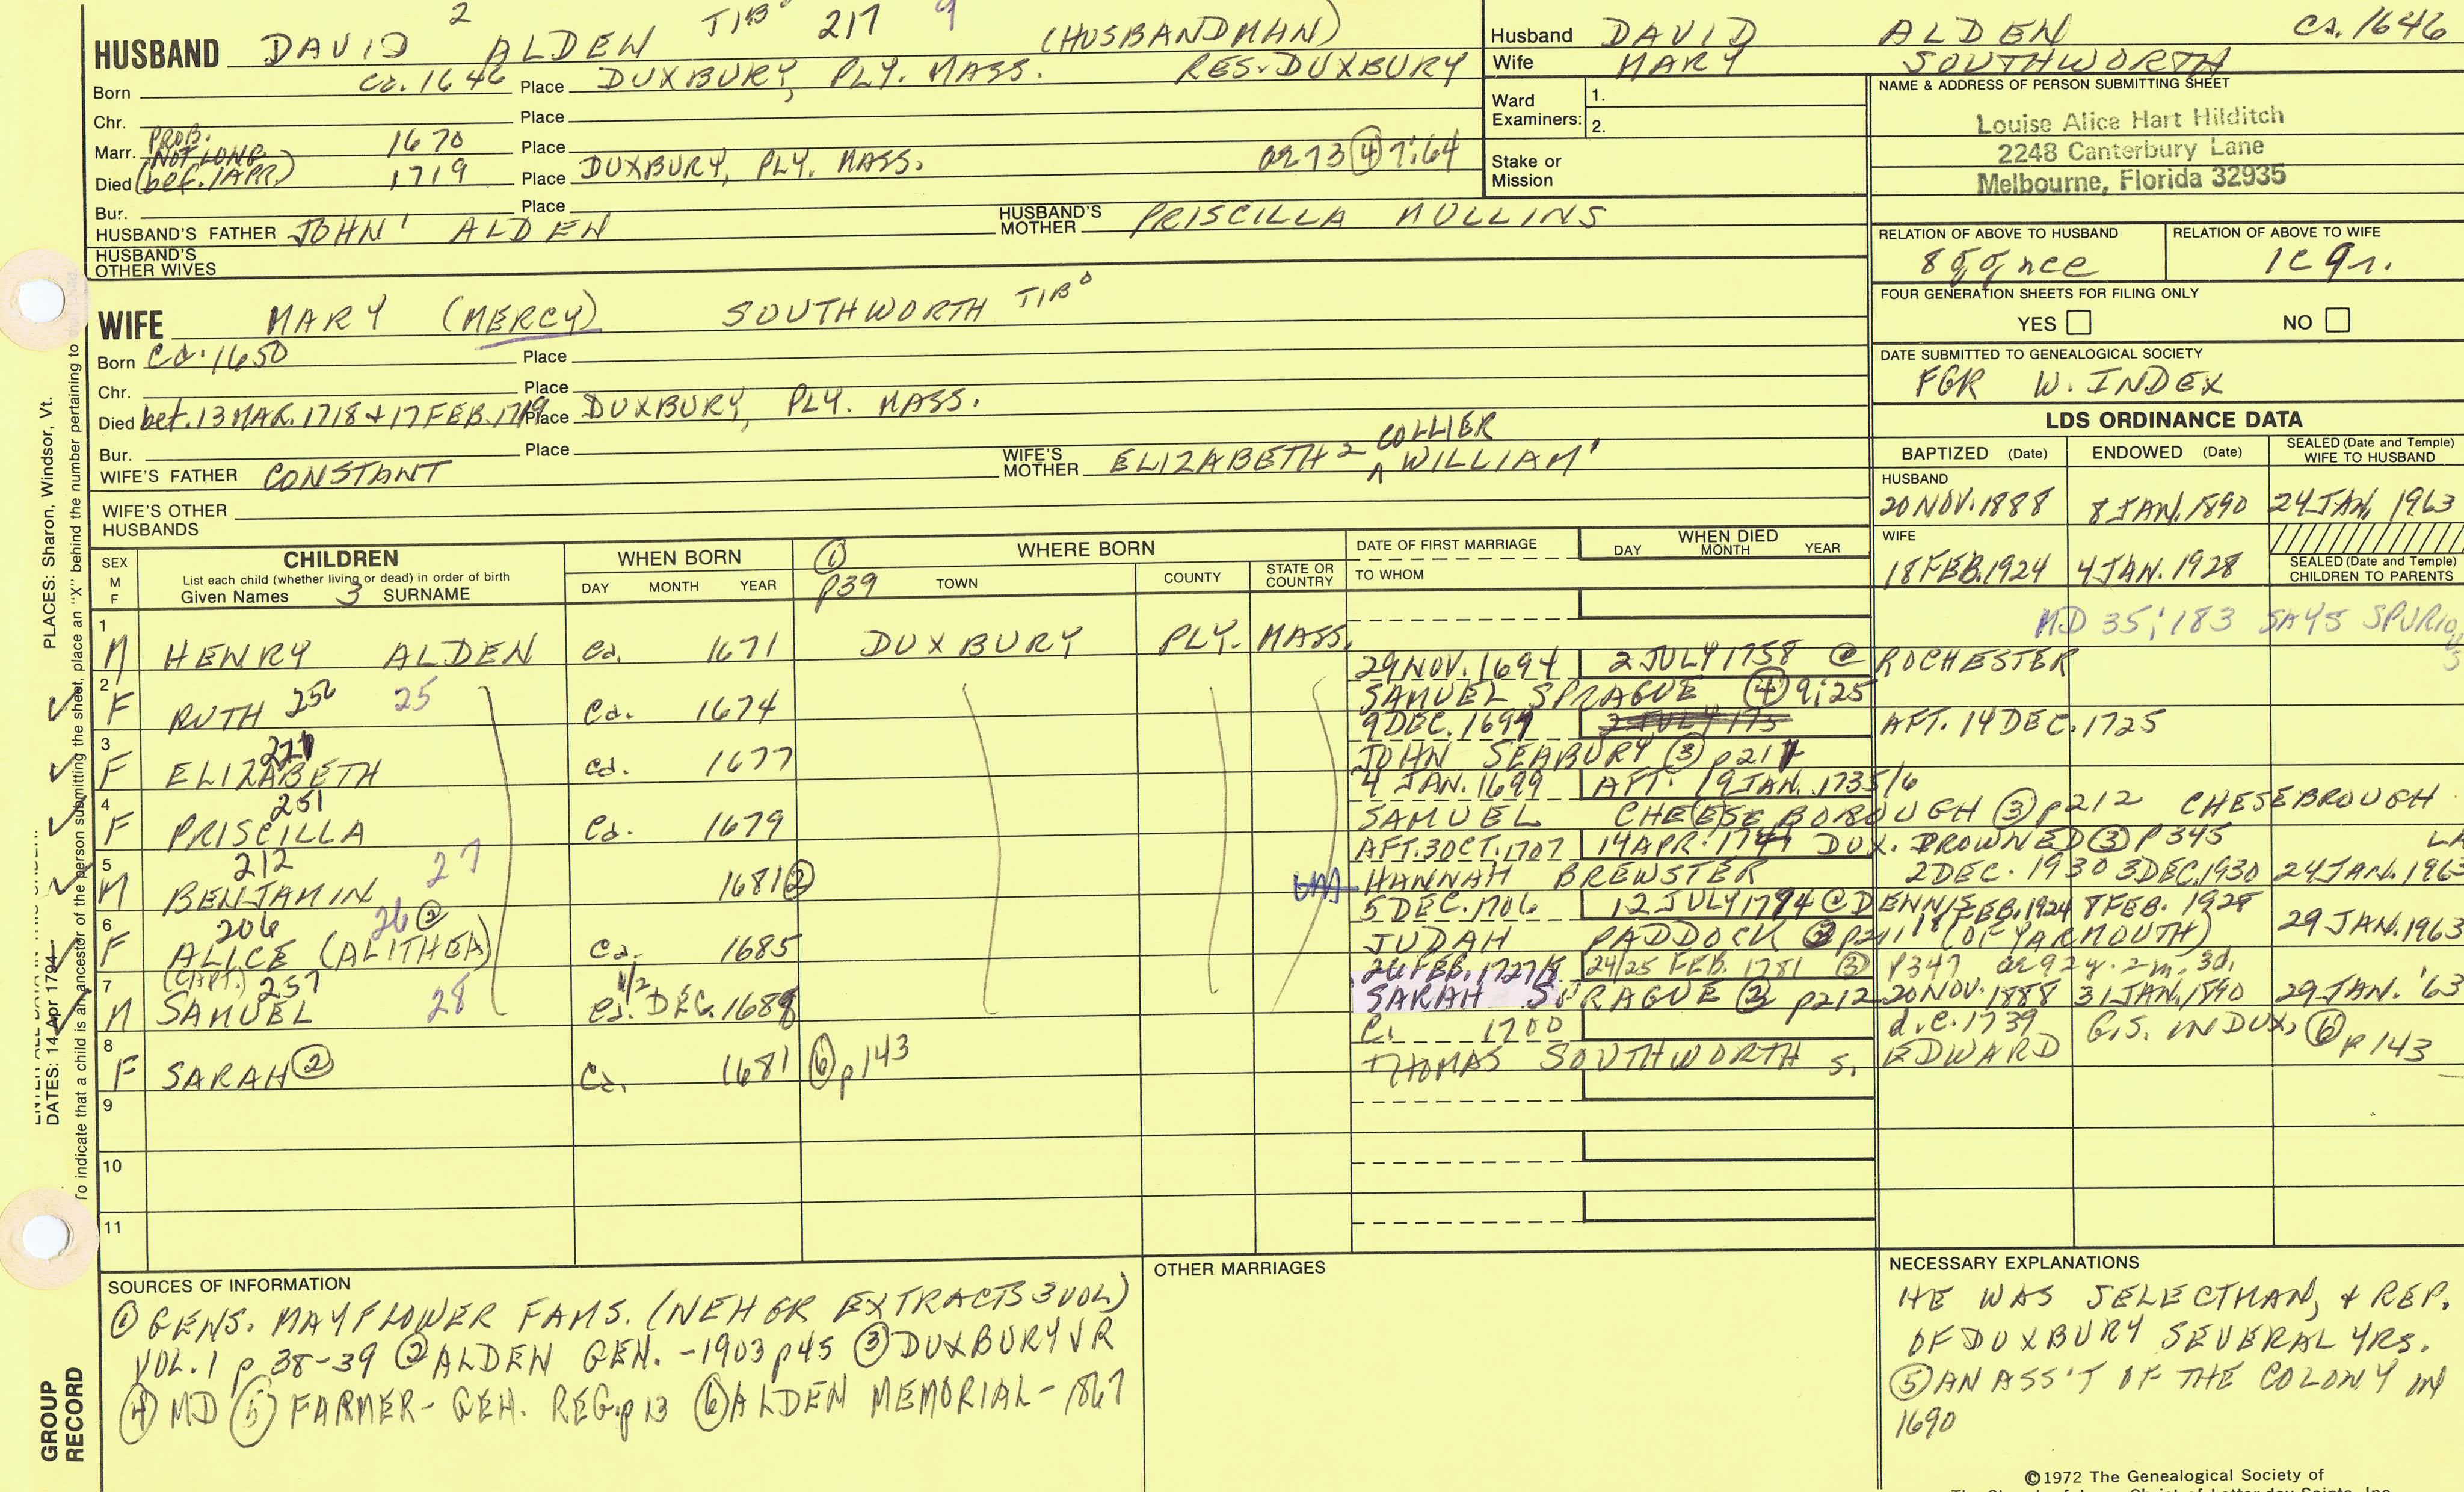 2 T1B° 217 9
HUSBAND DAVID ALDEN (HUSBANDMAN)
Born ca. 1646 Place DUXBURY, PLY. MASS. RES. DUXBURY
Chr. Place
PROB.
Marr. (NOT LONG 1670 Place
Died (bef. 1 APR.) 1719 Place DUXBURY, PLY. MASS. ae 73 ④ 9:64
Bur. Place
HUSBAND'S FATHER JOHN¹ ALDEN HUSBAND'S MOTHER PRISCILLA MULLINS
HUSBAND'S OTHER WIVES
WIFE MARY (MERCY) SOUTHWORTH T1B°
Born ca. 1650 Place
Chr. Place
Died bet. 13 MAR. 1718 & 17 FEB. 1719 Place DUXBURY, PLY. MASS.
Bur. Place
COLLIER
WIFE'S FATHER CONSTANT WIFE'S MOTHER ELIZABETH² ^ WILLIAM¹
WIFE'S OTHER HUSBANDS
Husband DAVID ALDEN ca. 1646
Wife MARY SOUTHWORTH
Ward Examiners: 1.
2.
Stake or Mission
NAME & ADDRESS OF PERSON SUBMITTING SHEET
Louise Alice Hart Hilditch
2248 Canterbury Lane
Melbourne, Florida 32935
RELATION OF ABOVE TO HUSBAND RELATION OF ABOVE TO WIFE
8 gg nce 1c 9r.
FOUR GENERATION SHEETS FOR FILING ONLY
YES NO
DATE SUBMITTED TO GENEALOGICAL SOCIETY
FGR W. INDEX
LDS ORDINANCE DATA
BAPTIZED (Date) ENDOWED (Date) SEALED (Date and Temple) WIFE TO HUSBAND
HUSBAND
20 NOV. 1888 8 JAN. 1890 24 JAN. 1963
WIFE
18 FEB. 1924 4 JAN. 1928 SEALED (Date and Temple) CHILDREN TO PARENTS
SEX M F CHILDREN WHEN BORN ① WHERE BORN DATE OF FIRST MARRIAGE WHEN DIED
List each child (whether living or dead) in order of birth
Given Names 3 SURNAME DAY MONTH YEAR p39 TOWN COUNTY STATE OR COUNTRY TO WHOM DAY MONTH YEAR
MD 35:183 SAYS SPURIOUS
1 M HENRY ALDEN ca. 1671 DUXBURY PLY. MASS.
29 NOV. 1694 2 JULY 1758 @ ROCHESTER
2 F RUTH 256 25 ca. 1674 SAMUEL SPRAGUE ④ 9:25
9 DEC. 1697 AFT. 14 DEC. 1725
3 F ELIZABETH ca. 1677 JOHN SEABURY ③ p211
4 JAN. 1699 AFT. 19 JAN. 1735/6
4 F PRISCILLA 251 ca. 1679 SAMUEL CHEESEBOROUGH ③ p212 CHESEBROUGH
AFT. 30 OCT. 1707 14 APR. 1741 DUX. DROWNED ③ P345 LA
5 M BENJAMIN 212 27 1681 ② HANNAH BREWSTER 2 DEC. 1930 3 DEC. 1930 24 JAN. 1963
5 DEC. 1706 12 JULY 1794 @ DENNIS 18 FEB. 1924 8 FEB. 1928
6 F ALICE (ALITHEA) 206 26 ② ca. 1685 JUDAH PADDOCK ③ p211 (OF YARMOUTH) 29 JAN. 1963
26 FEB. 1727/8 24/25 FEB. 1781 ③ P347 ae 92 y. 2 m. 3 d.
7 M (CAPT.) SAMUEL 257 28 ca. 1/2 DEC. 1688 SARAH SPRAGUE ③ p212 20 NOV. 1888 31 JAN. 1890 29 JAN. '63
c. 1700 d. c. 1739 G.S. IN DUX. ⑥ p143
8 F SARAH ② ca. 1681 ⑥ p143 THOMAS SOUTHWORTH s. EDWARD
9
10
11
SOURCES OF INFORMATION
① GENS. MAYFLOWER FAMS. (NEHGR EXTRACTS 3 VOL)
VOL. 1 p 38-39 ② ALDEN GEN. -1903 p45 ③ DUXBURY VR
④ MD ⑤ FARMER- GEN. REG. p 13 ⑥ ALDEN MEMORIAL - 1867
OTHER MARRIAGES
NECESSARY EXPLANATIONS
HE WAS SELECTMAN, & REP.
OF DUXBURY SEVERAL YRS.
⑤ AN ASS'T OF THE COLONY IN
1690
©1972 The Genealogical Society of
PLACES: Sharon, Windsor, Vt.
DATES: 14 Apr 1794
To indicate that a child is an ancestor of the person submitting the sheet, place an "X" behind the number pertaining to
GROUP
RECORD